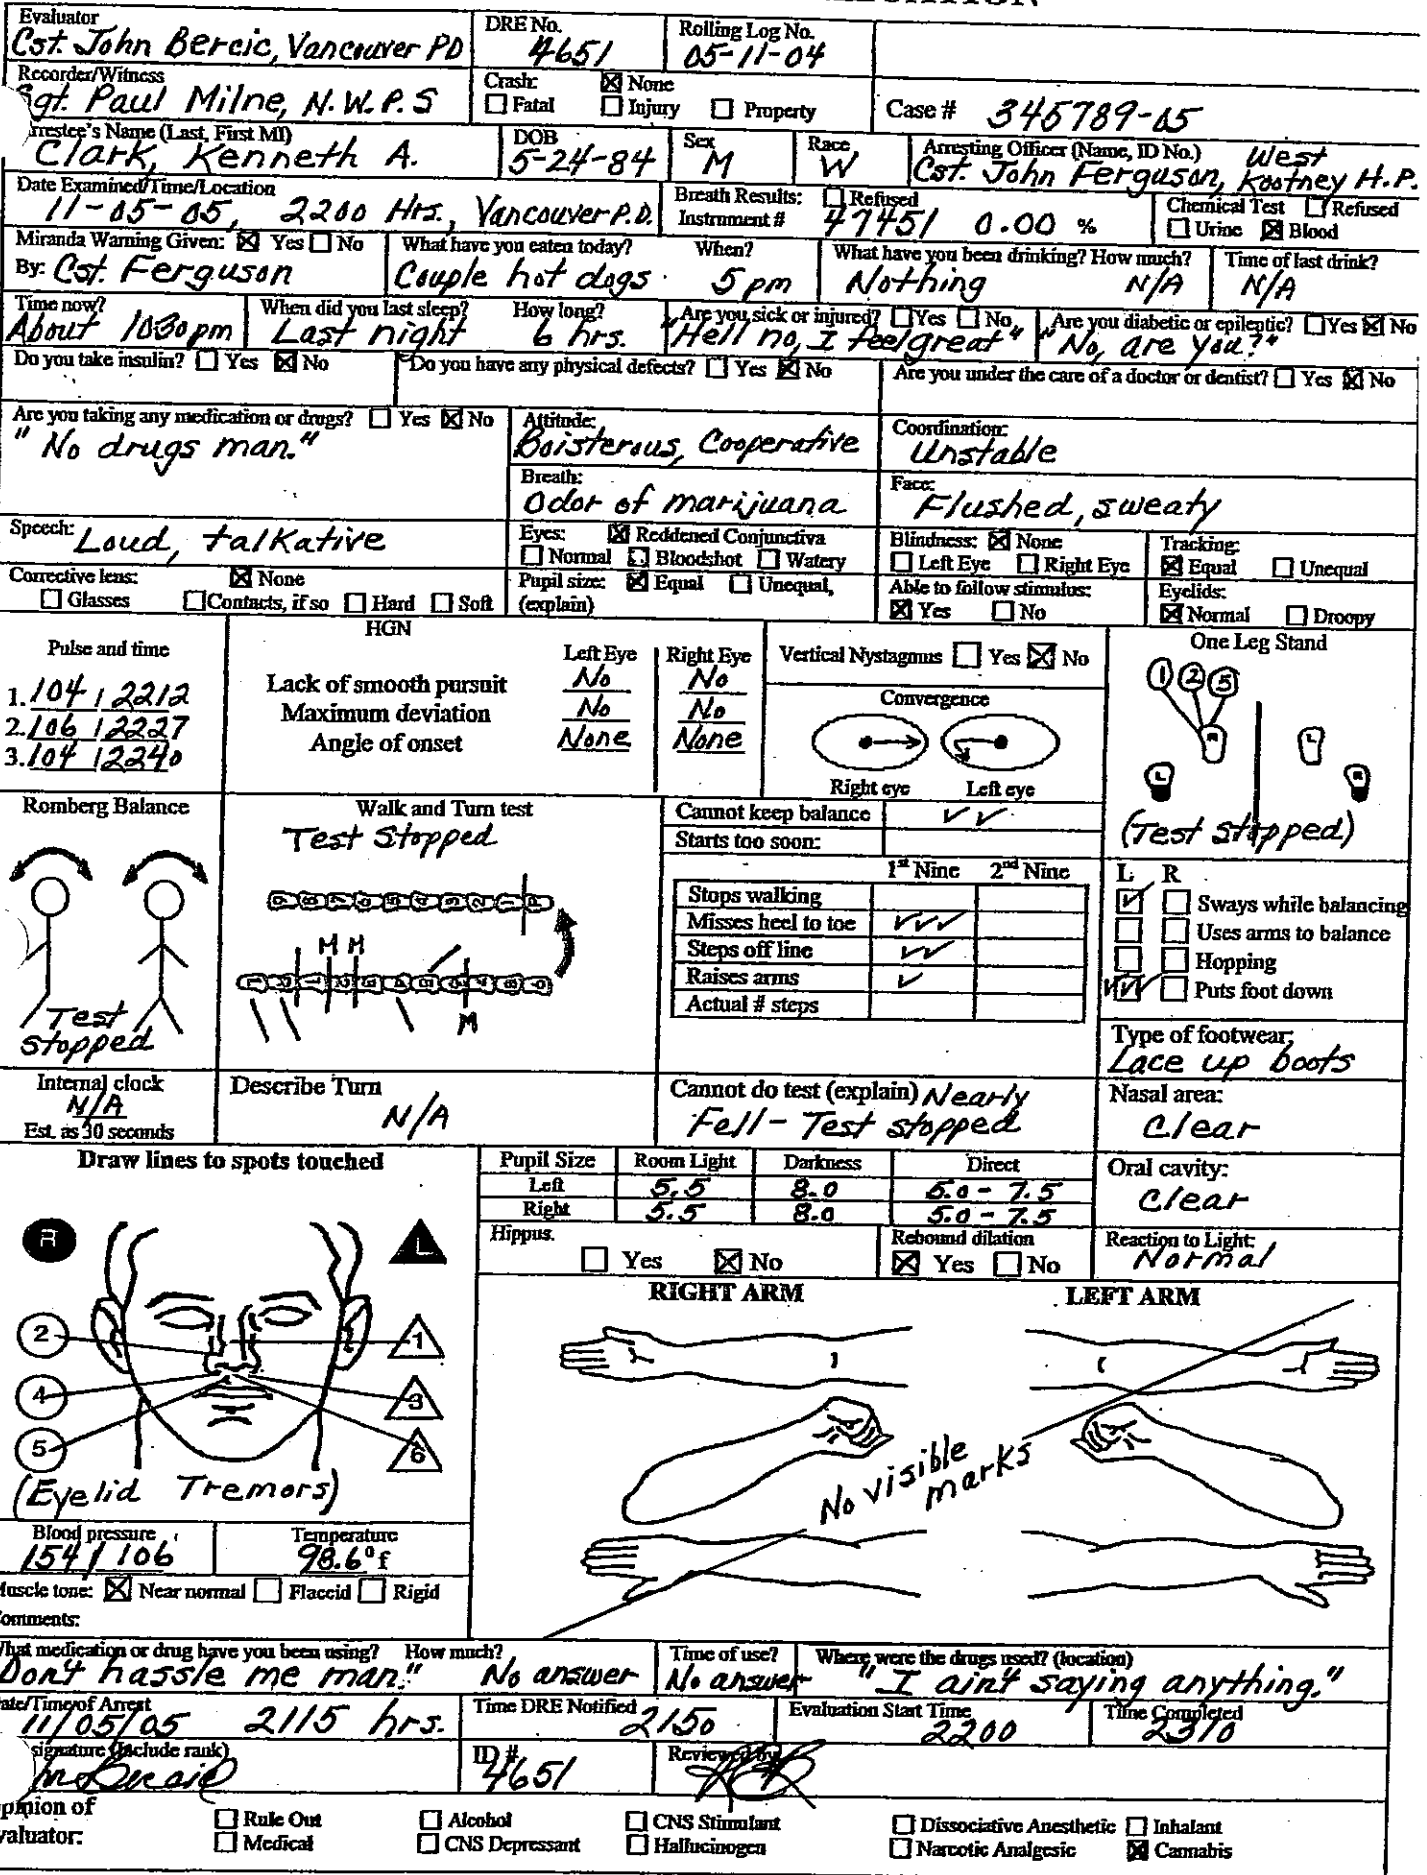 Evaluator
Cst. John Bercic, Vancouver PD
DRE No.
4651
Rolling Log No.
05-11-04
Recorder/Witness
Sgt. Paul Milne, N.W.P.S
Crash: ☒ None
☐ Fatal ☐ Injury ☐ Property
Case # 345789-05
Arrestee's Name (Last, First MI)
Clark, Kenneth A.
DOB
5-24-84
Sex
M
Race
W
Arresting Officer (Name, ID No.) West
Cst. John Ferguson, Kootney H.P.
Date Examined/Time/Location
11-05-05, 2200 Hrs., Vancouver P.D.
Breath Results: ☐ Refused
Instrument # 47451 0.00 %
Chemical Test ☐ Refused
☐ Urine ☒ Blood
Miranda Warning Given: ☒ Yes ☐ No
By: Cst. Ferguson
What have you eaten today? When?
Couple hot dogs 5 pm
What have you been drinking? How much?
Nothing N/A
Time of last drink?
N/A
Time now?
About 1030pm
When did you last sleep? How long?
Last night 6 hrs.
Are you sick or injured? ☐ Yes ☐ No
"Hell no, I feel great"
Are you diabetic or epileptic? ☐ Yes ☒ No
"No, are you?"
Do you take insulin? ☐ Yes ☒ No
Do you have any physical defects? ☐ Yes ☒ No
Are you under the care of a doctor or dentist? ☐ Yes ☒ No
Are you taking any medication or drugs? ☐ Yes ☒ No
"No drugs man."
Attitude:
Boisterous, Cooperative
Coordination:
Unstable
Breath:
Odor of marijuana
Face:
Flushed, sweaty
Speech: Loud, talkative
Eyes: ☒ Reddened Conjunctiva
☐ Normal ☐ Bloodshot ☐ Watery
Blindness: ☒ None
☐ Left Eye ☐ Right Eye
Tracking:
☒ Equal ☐ Unequal
Corrective lens: ☒ None
☐ Glasses ☐ Contacts, if so ☐ Hard ☐ Soft
Pupil size: ☒ Equal ☐ Unequal,
(explain)
Able to follow stimulus:
☒ Yes ☐ No
Eyelids:
☒ Normal ☐ Droopy
Pulse and time
1. 104 / 2212
2. 106 / 2227
3. 104 / 2240
HGN
Left Eye Right Eye
Lack of smooth pursuit No No
Maximum deviation No No
Angle of onset None None
Vertical Nystagmus ☐ Yes ☒ No
Convergence
Right eye Left eye
One Leg Stand
1 2 5
R L
L R
(Test stopped)
Romberg Balance
Test
stopped
Walk and Turn test
Test Stopped
M M
M
Cannot keep balance ✓✓
Starts too soon:
1st Nine 2nd Nine
Stops walking
Misses heel to toe ✓✓✓
Steps off line ✓✓
Raises arms ✓
Actual # steps
L R
☑ ☐ Sways while balancing
☐ ☐ Uses arms to balance
☐ ☐ Hopping
✓✓✓ ☐ Puts foot down
Type of footwear:
Lace up boots
Internal clock
N/A
Est. as 30 seconds
Describe Turn
N/A
Cannot do test (explain) Nearly
Fell - Test stopped
Nasal area:
Clear
Draw lines to spots touched
Pupil Size Room Light Darkness Direct
Left 5.5 8.0 5.0 - 7.5
Right 5.5 8.0 5.0 - 7.5
Oral cavity:
Clear
Hippus.
☐ Yes ☒ No
Rebound dilation
☒ Yes ☐ No
Reaction to Light:
Normal
R L
2 1
4 3
5 6
(Eyelid Tremors)
RIGHT ARM LEFT ARM
No visible
marks
Blood pressure
154 / 106
Temperature
98.6° f
Muscle tone: ☒ Near normal ☐ Flaccid ☐ Rigid
Comments:
What medication or drug have you been using? How much?
Don't hassle me man." No answer
Time of use?
No answer
Where were the drugs used? (location)
"I ain't saying anything."
Date/Time of Arrest
11/05/05 2115 hrs.
Time DRE Notified
2150
Evaluation Start Time
2200
Time Completed
2310
signature (Include rank)
ID #
4651
Reviewed by
Opinion of
Evaluator:
☐ Rule Out ☐ Alcohol ☐ CNS Stimulant ☐ Dissociative Anesthetic ☐ Inhalant
☐ Medical ☐ CNS Depressant ☐ Hallucinogen ☐ Narcotic Analgesic ☒ Cannabis